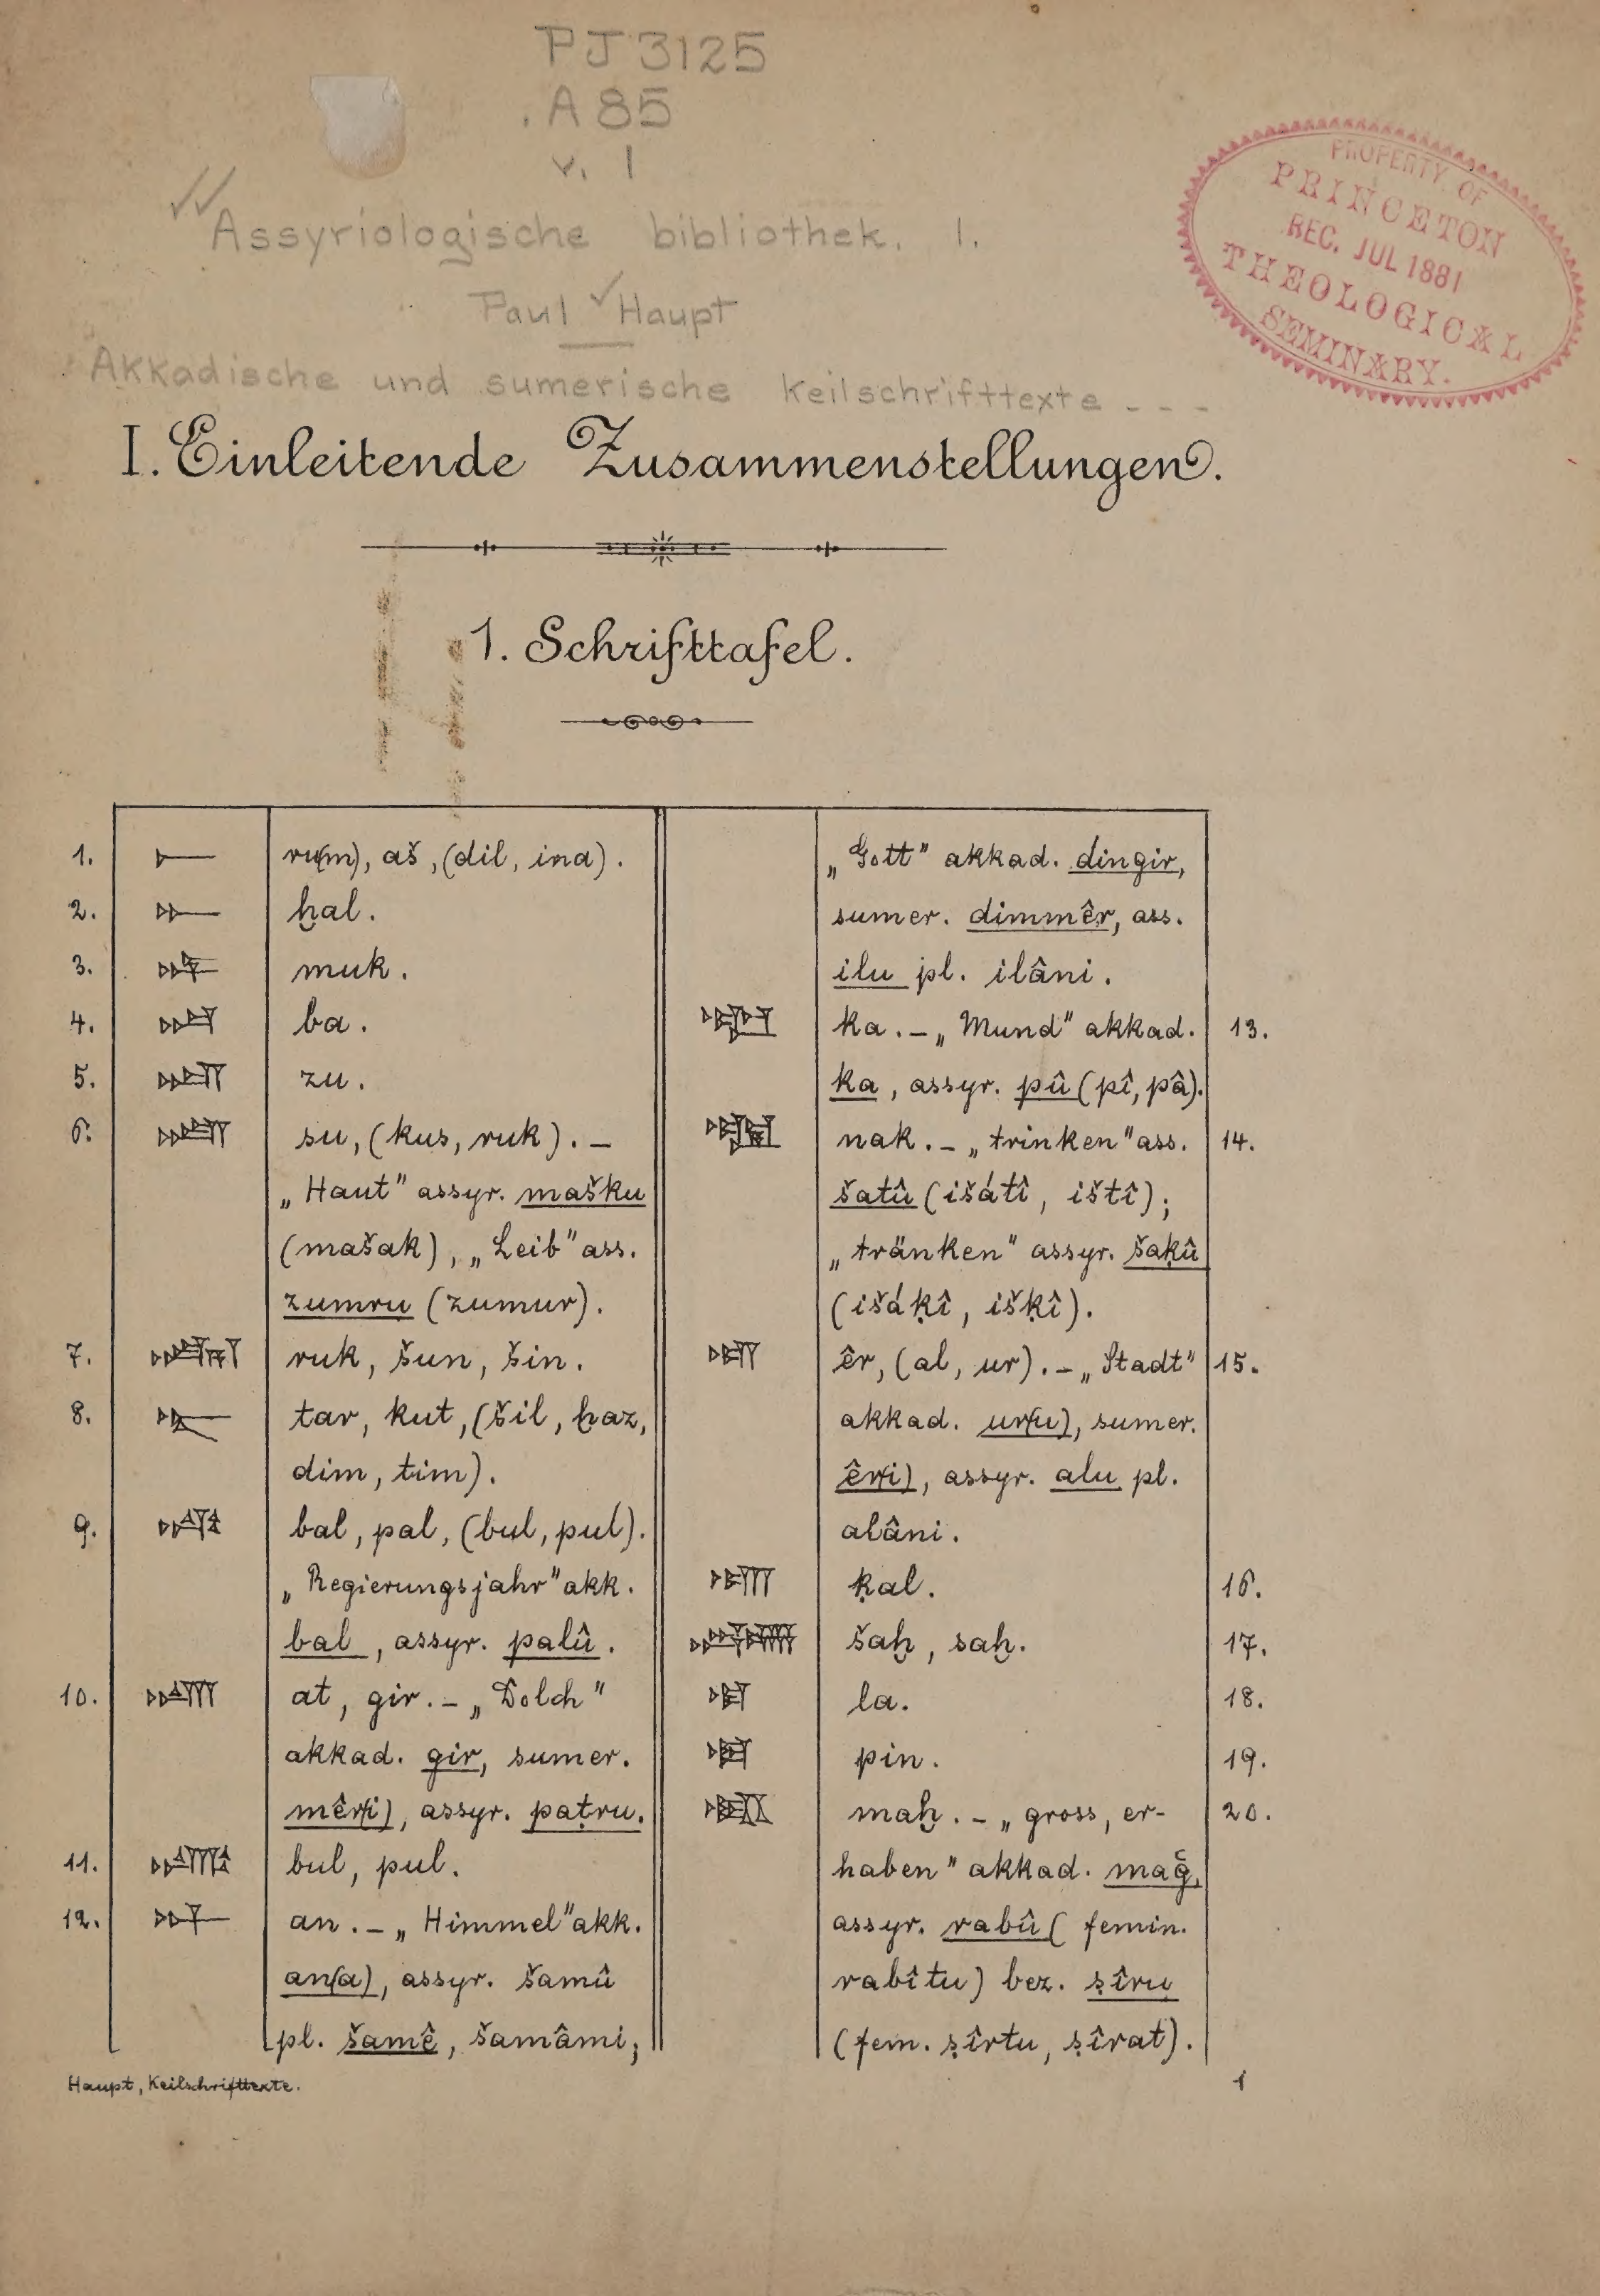 PJ 3125
.A 85
v. 1
Assyriologische bibliothek. 1.
Paul Haupt
Akkadische und sumerische Keilschrifttexte - - -
PROPERTY OF
PRINCETON
REC. JUL 1881
THEOLOGICAL
SEMINARY.
I. Einleitende Zusammenstellungen.
1. Schrifttafel.
1. 𒀸 ru(m), aš, (dil, ina).
2. 𒄬 ḫal.
3. 𒈮 muk.
4. 𒁀 ba.
5. 𒍪 zu.
6. 𒋢 su, (kus, ruk). –
„Haut" assyr. mašku
(mašak), „Leib" ass.
zumru (zumur).
7. 𒋞 ruk, šun, šin.
8. 𒋻 tar, kut, (šil, ḫaz,
dim, tim).
9. 𒁄 bal, pal, (bul, pul).
„Regierungsjahr" akk.
bal, assyr. palû.
10. 𒄈 at, gir. – „Dolch"
akkad. gir, sumer.
mêr(i), assyr. paṭru.
11. 𒁍 bul, pul.
12. 𒀭 an. – „Himmel" akk.
an(a), assyr. šamû
pl. šamê, šamâmi;
„Gott" akkad. dingir,
sumer. dimmêr, ass.
ilu pl. ilâni.
𒅗 ka. – „Mund" akkad. 13.
ka, assyr. pû (pî, pâ).
𒅘 nak. – „trinken" ass. 14.
šatû (išátî, ištî);
„tränken" assyr. šaḳû
(išáḳî, išḳî).
𒌷 êr, (al, ur). – „Stadt" 15.
akkad. ur(u), sumer.
êr(i), assyr. alu pl.
alâni.
ḳal. 16.
šaḫ, saḫ. 17.
𒆷 la. 18.
𒀳 pin. 19.
𒈤 maḫ. – „gross, er- 20.
haben" akkad. mağ,
assyr. rabû (femin.
rabîtu) bez. ṣîru
(fem. ṣîrtu, ṣîrat).
Haupt, Keilschrifttexte. 1